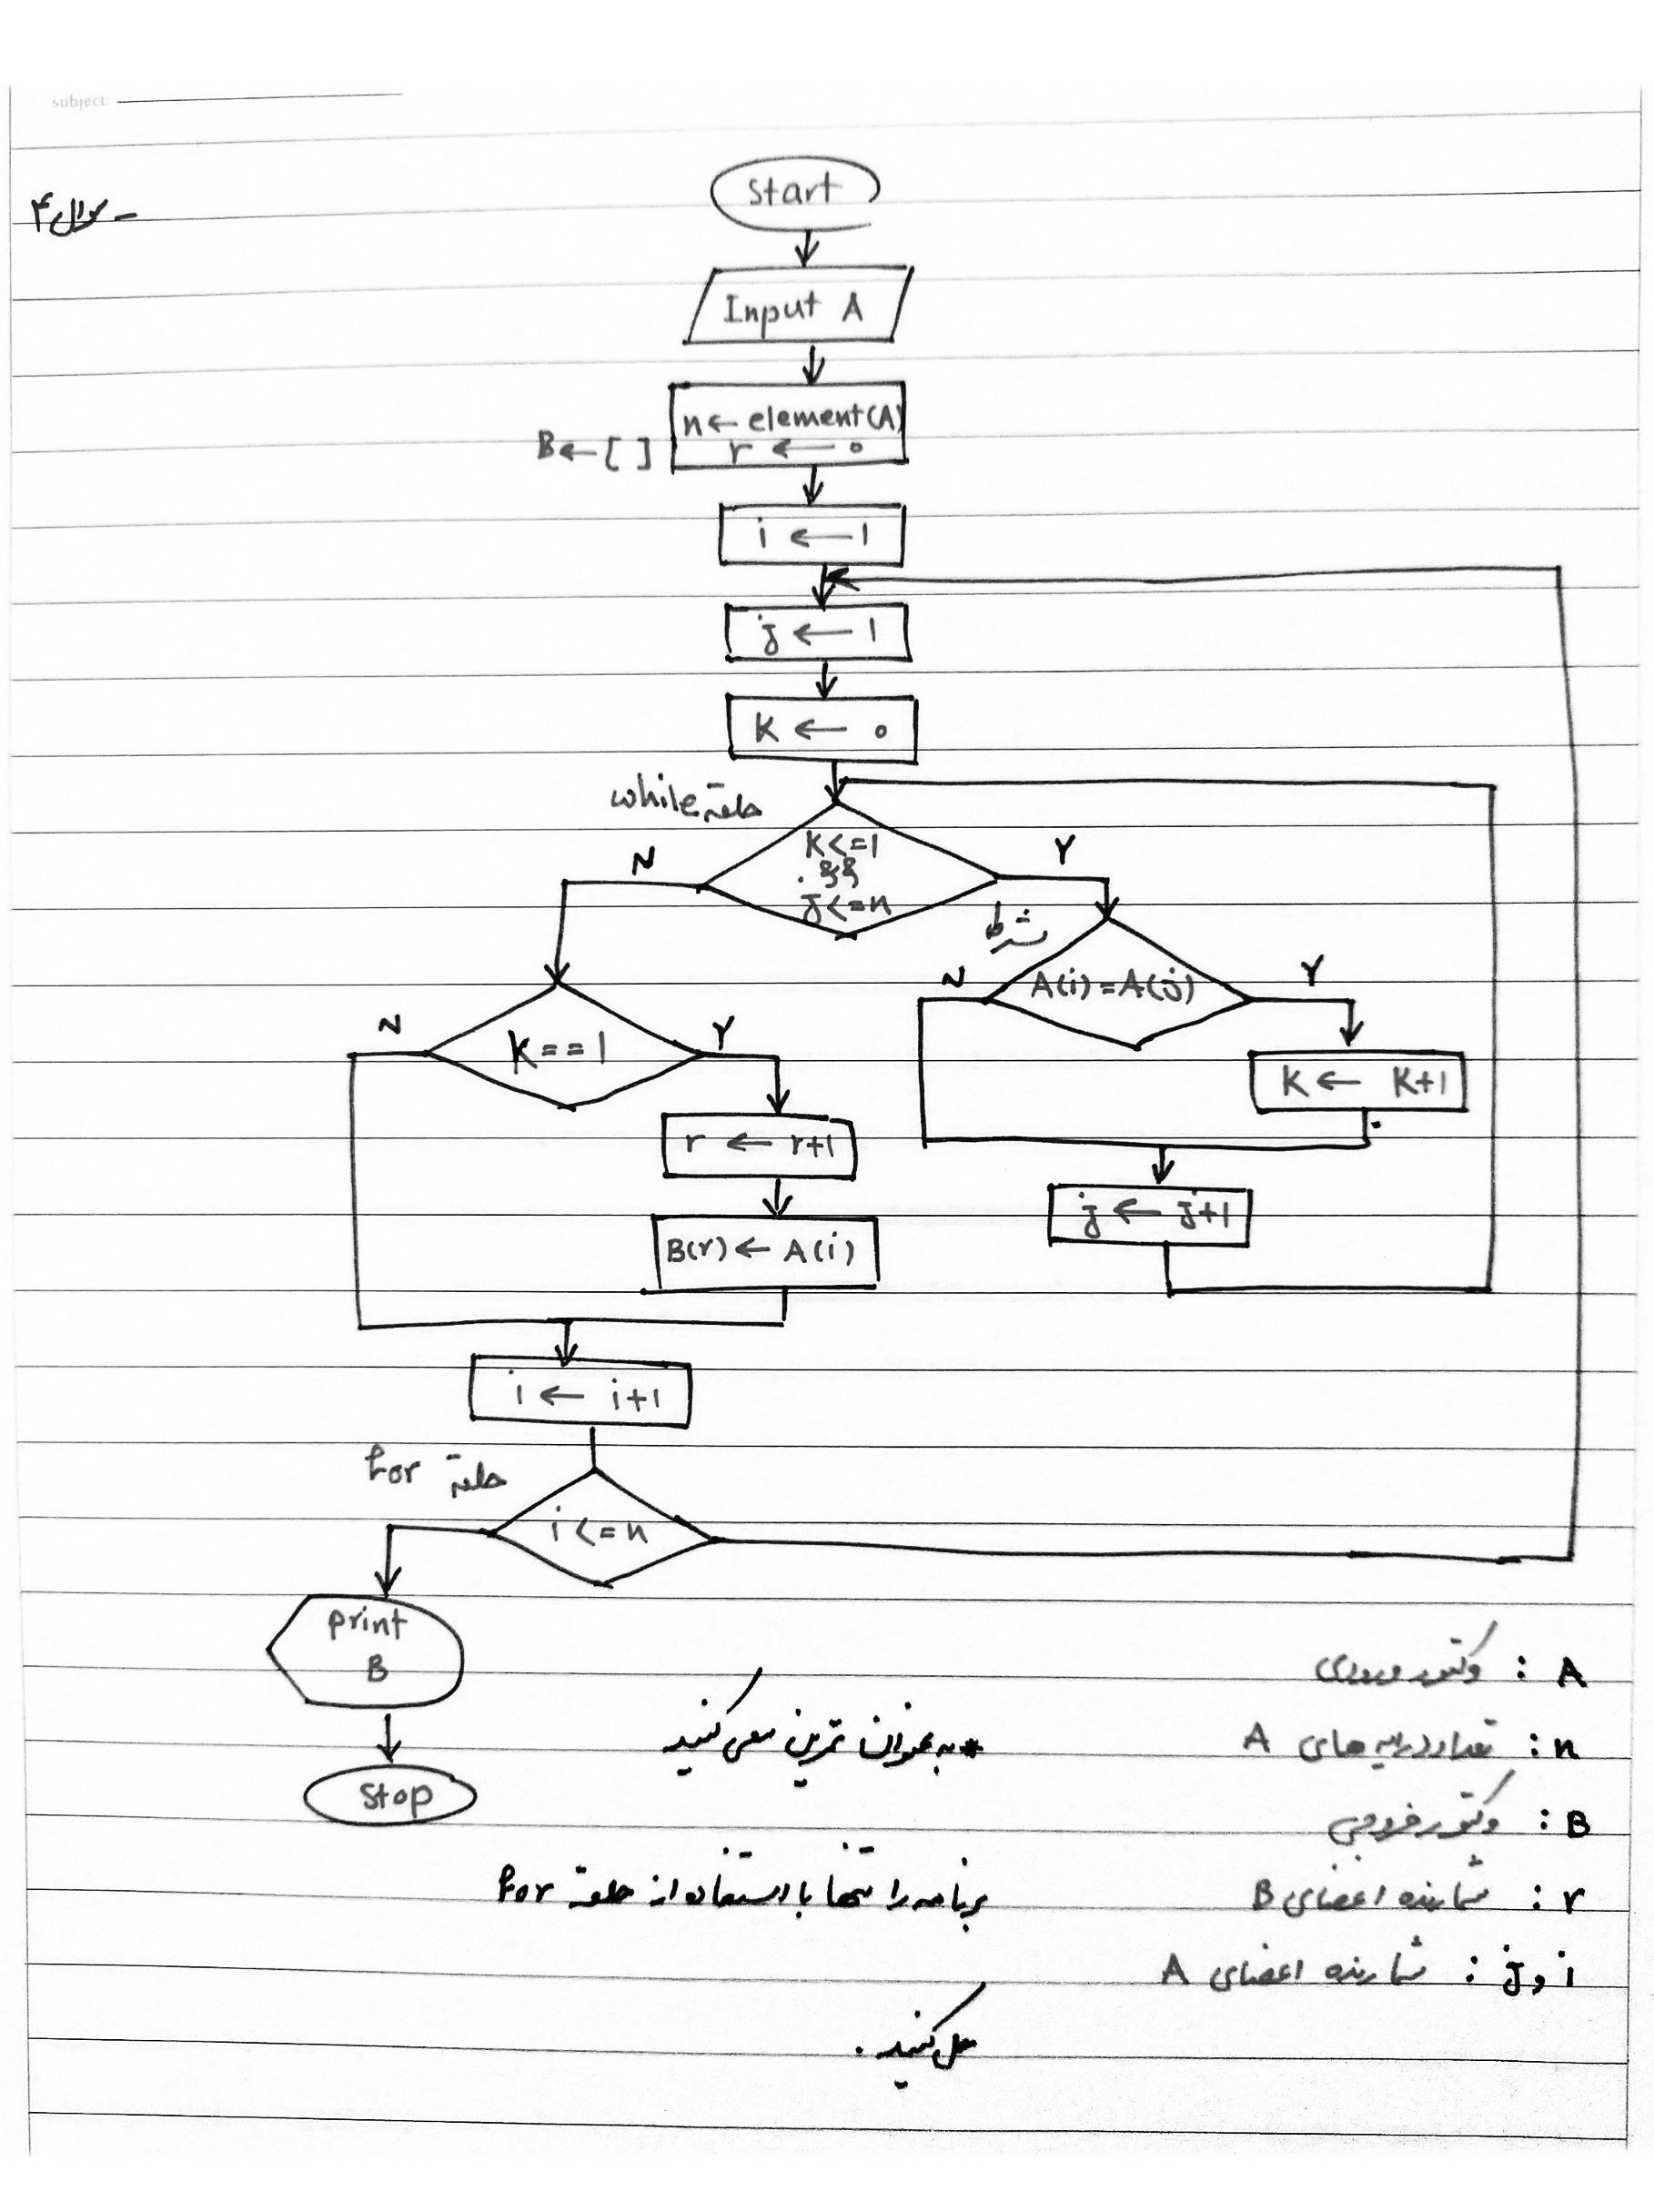 subject:
- سوال ۴
Start
Input A
n ← element(A)
r ← 0
B ← [ ]
i ← 1
j ← 1
K ← 0
حلقهٔ while
K<=1
&&
j<=n
N
Y
شرط
A(i)=A(j)
N
Y
K ← K+1
j ← j+1
K==1
N
Y
r ← r+1
B(r) ← A(i)
i ← i+1
حلقهٔ for
i<=n
print
B
Stop
A : وکتور ورودی
n : تعداد درایه های A
B : وکتور خروجی
r : شمارنده اعضای B
i و j : شمارنده اعضای A
* به عنوان تمرین سعی کنید
برنامه را تنها با استفاده از حلقهٔ for
حل کنید.